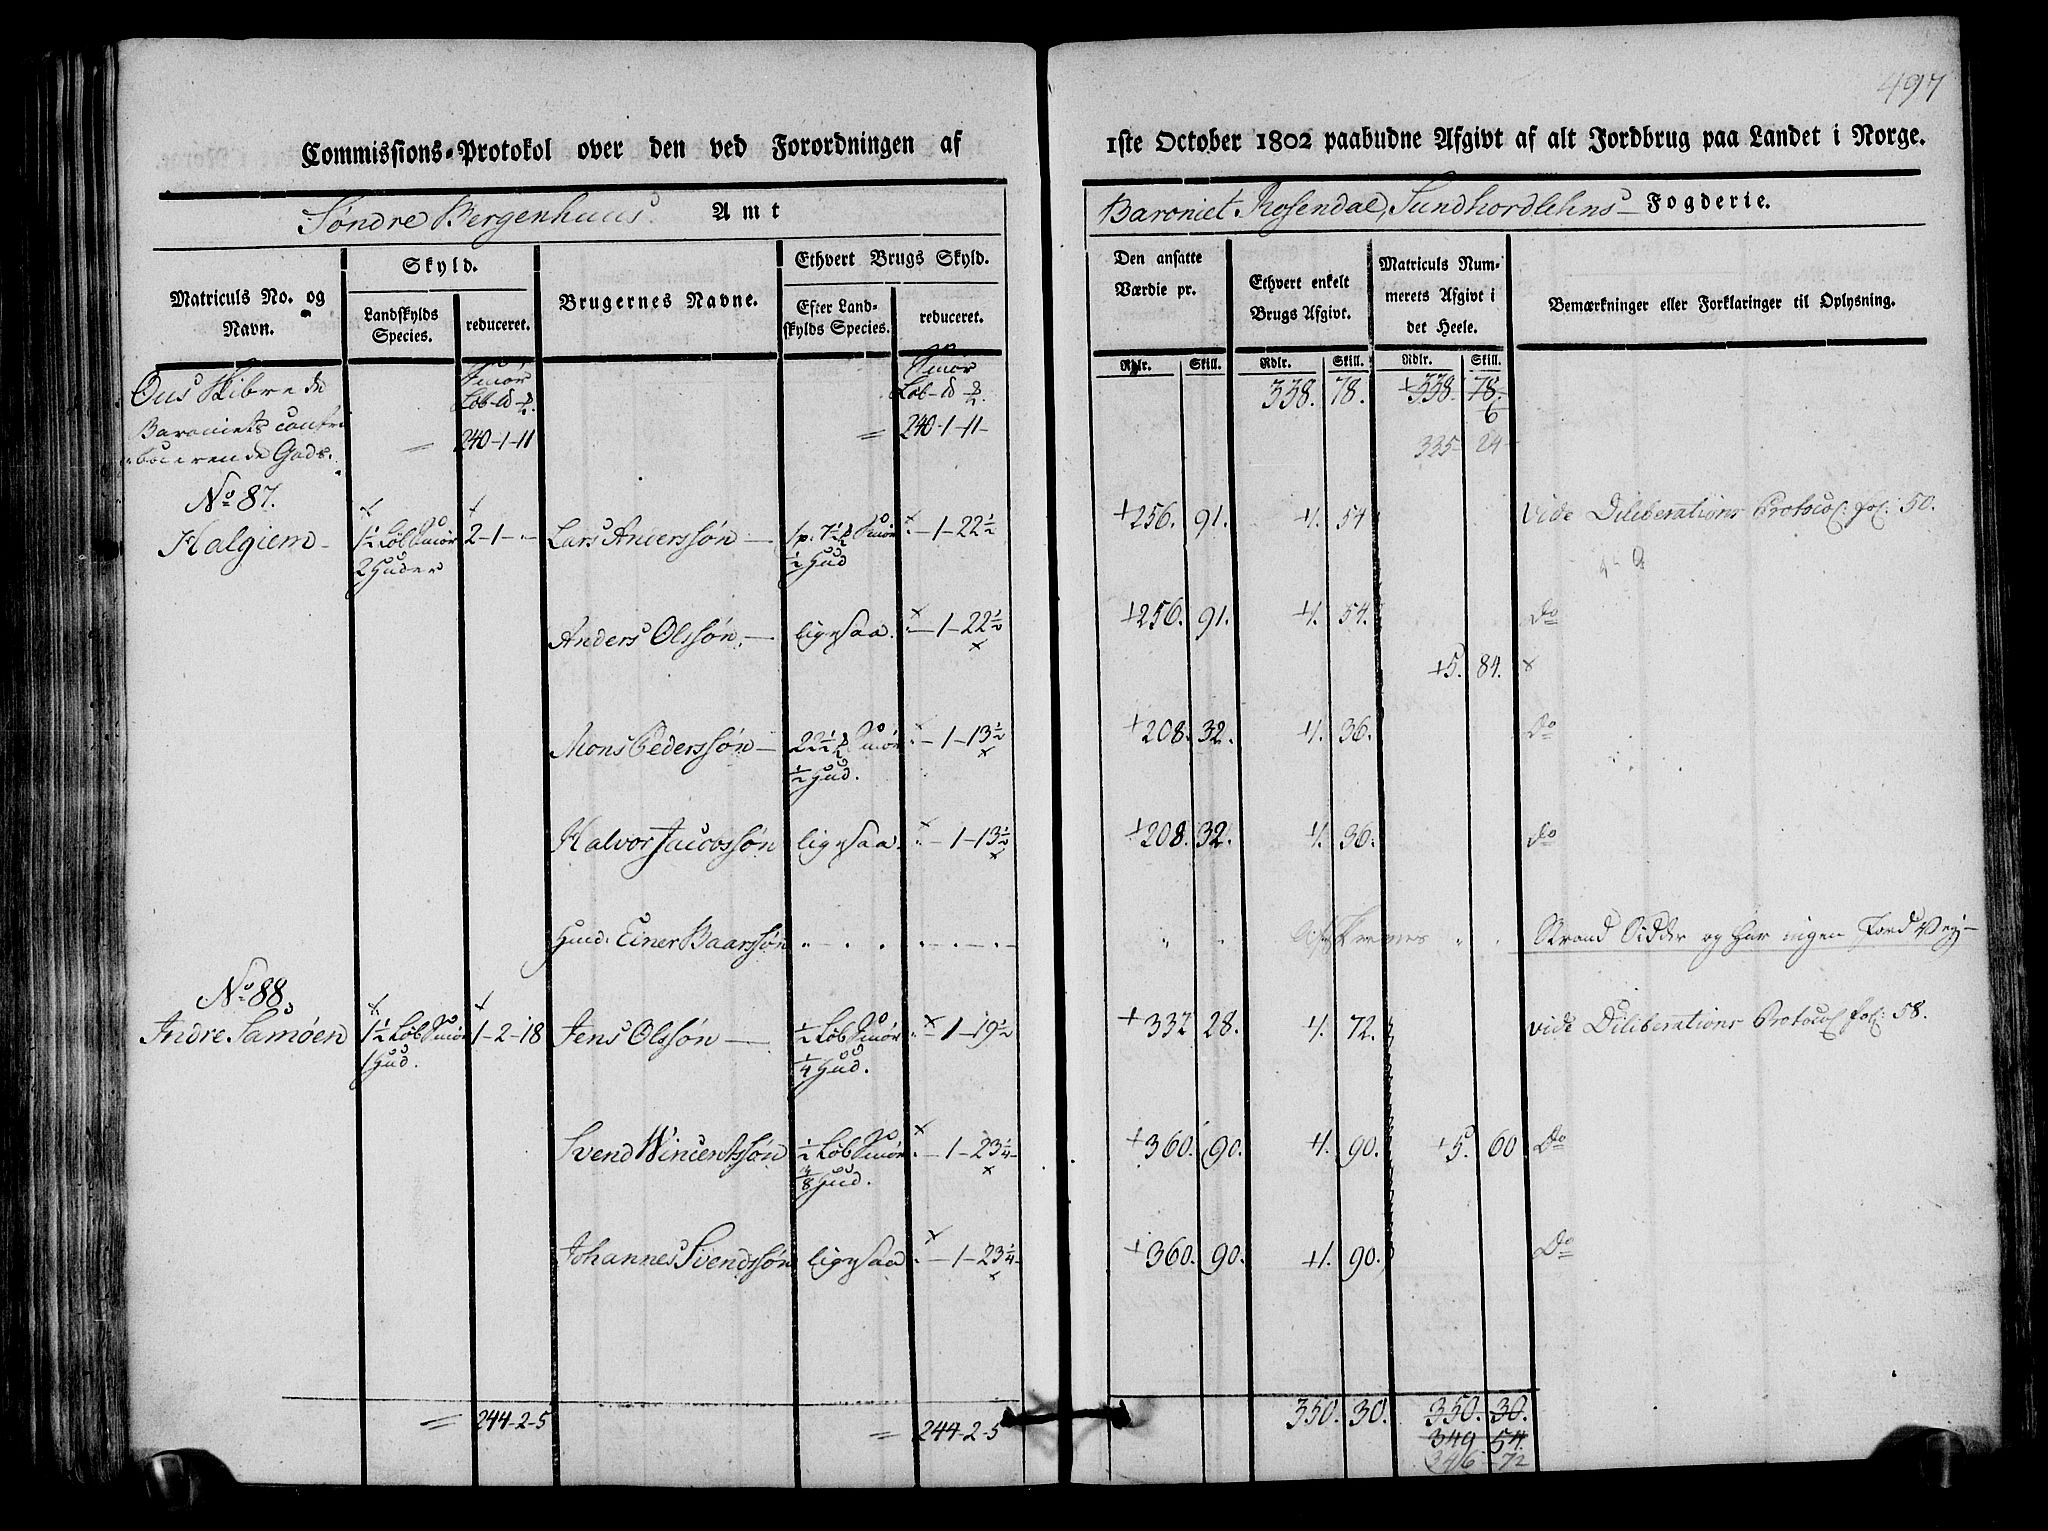 497
Commissions-Protokol over den ved Forordningen af 1ste October 1802 paabudne Afgivt af alt Jordbrug paa Landet i Norge.
Søndre Bergenhuus Amt
Baroniet Rosendal, Sundhordlehns Fogderie.
Matriculs No. og Navn.
Skyld.
Landskylds Species.
reduceret.
Brugernes Navne.
Ethvert Brugs Skyld.
Efter Landskylds Species.
reduceret.
Den ansatte Værdie pr.
Ethvert enkelt Brugs Afgivt.
Matriculs Nummerets Afgivt i det Heele.
Bemærkninger eller Forklaringer til Oplysning.
Rdlr. Skill. Rdlr. Skill. Rdlr. Skill.
Ous Skibrede
Baroniets contri
bueerende Gods.
Smør
Løb
240-1-11
Smør
Løb
240-1-11-
338. 78. 338. 78.
6
325 24
No 87.
Halgiem 1½ Løb Smør 2-1- Lars Anderssøn 1 p. 7½ Smør -1-22½ 256. 91. 1. 54 vide Deliberations Protocol fol: 50.
2 Huder ½ Hud
Anders Olssøn ligesaa. -1-22½ 256. 91. 1. 54. Do
5. 84.
Mons Pederssøn 22½ Smør -1-13½ 208. 32. 1. 36. Do
½ Hud.
Halvor Jacobssøn ligesaa. -1-13½ 208. 32. 1. 36. Do
Huusmd. Einer Baarssøn Strand Sidder og har ingen Jord Vej
No 88.
Indre Samøen 1½ Løb Smør 1-2-18 Jens Olssøn ½ Løb Smør -1-19½ 332 28. 1. 72. vide Deliberations Protocol fol: 58.
1 Hud. ¼ Hud.
Svend Wincentssøn ½ Løb Smør -1-23¼ 360. 90. 1. 90. 5. 60 Do
⅜ Hud.
Johannes Svendssøn ligesaa -1-23¼ 360. 90. 1. 90. Do
244-2-5 244-2-5 350. 30. 350. 30.
349 54.
346 72